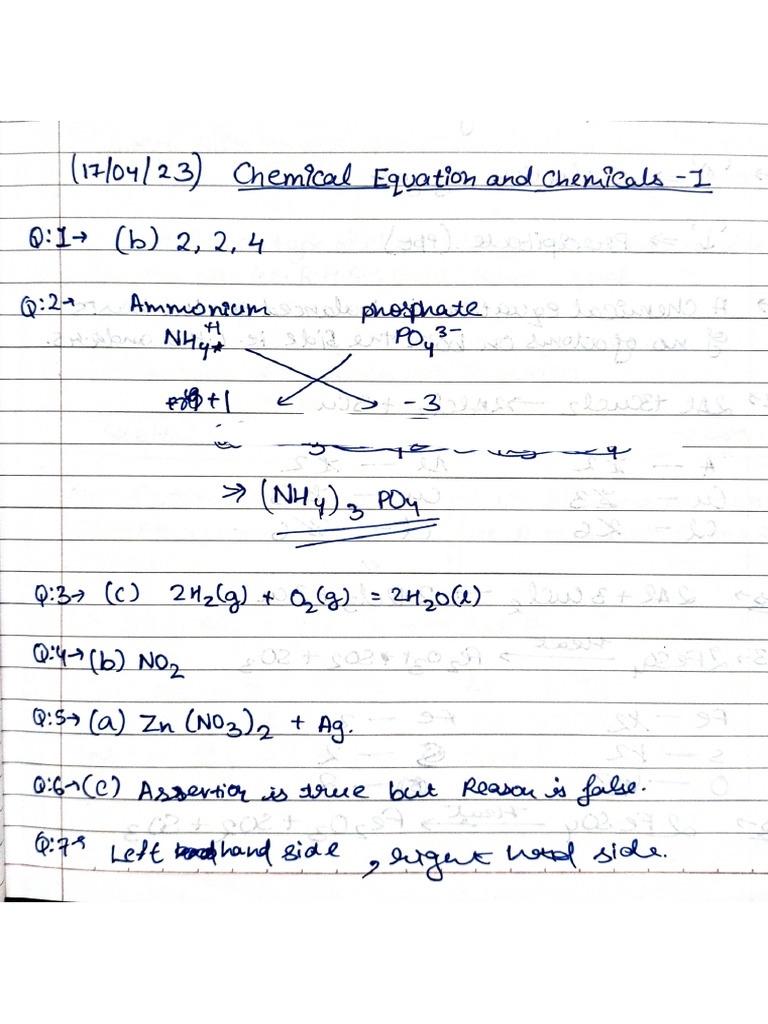 (17/04/23) Chemical Equation and Chemicals -I
Q:1→ (b) 2, 2, 4
Q:2→ Ammonium phosphate
NH4+1 PO4 3-
+1 -3
⇒ (NH4)3 PO4
Q:3→ (C) 2H2(g) + O2(g) = 2H2O(l)
Q:4→ (b) NO2
Q:5→ (a) Zn (NO3)2 + Ag.
Q:6→ (C) Assertion is true but Reason is false.
Q:7→ Left hand side , right hand side.